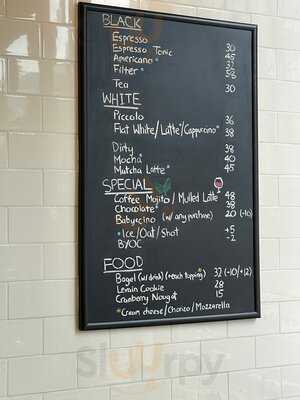 BLACK
Espresso 30
Espresso Tonic 45
Americano* 32
Filter* 38
Tea 30
WHITE
Piccolo 36
Flat White/Latte*/Cappucino* 38
Dirty 38
Mocha* 40
Matcha Latte* 45
SPECIAL
Coffee Mojito / Mulled Latte 48
Chocolate* 38
Babyccino (w/ any purchase) 20 (+10)
*Ice/Oat/Shot +5
BYOC -2
FOOD
Bagel (w/ drink) (+each topping*) 32 (+10/+12)
Levain Cookie 28
Cranberry Nougat 15
*Cream cheese/Chorizo/Mozzarella
Sluurpy